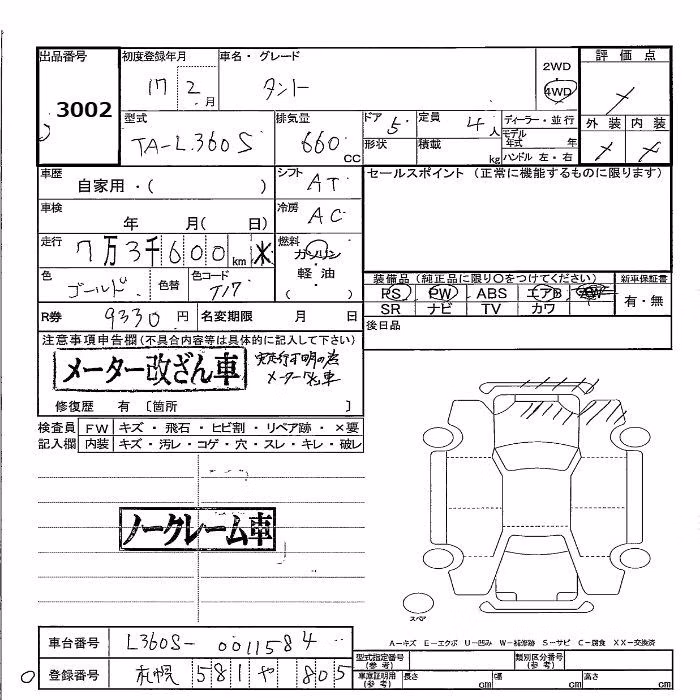 出品番号 3002
初度登録年月 17 2 月
車名・グレード タント
2WD
4WD
評価点
外装 内装
型式 TA-L360S
排気量 660 CC
ドア 5
形状
定員 4 人
積載 kg
ディーラー・並行
モデル年式 年
ハンドル 左・右
車歴 自家用・( )
シフト AT
セールスポイント (正常に機能するものに限ります)
車検 年 月( 日)
冷房 AC
走行 7万3千600km
燃料 ガソリン
軽・油
( )
色 ゴールド 色替 色コード T17
装備品 (純正品に限り○をつけてください)
新車保証書
PS PW ABS エアB AW
有・無
SR ナビ TV カワ
R券 9330 円 名変期限 月 日
後日品
注意事項申告欄 (不具合内容等は具体的に記入して下さい)
メーター改ざん車
修復歴 有 〔箇所 〕
検査員記入欄
FW キズ・飛石・ヒビ割・リペア跡・×要
内装 キズ・汚レ・コゲ・穴・スレ・キレ・破レ
ノークレーム車
スペア
A−キズ E−エクボ U−凹み W−補修跡 S−サビ C−腐食 XX−交換済
車台番号 L360S-0011584
登録番号 札幌 581 や 805
型式指定番号 (参考)
類別区分番号 (参考)
車庫証明用 (参考) 長さ cm 幅 cm 高さ cm